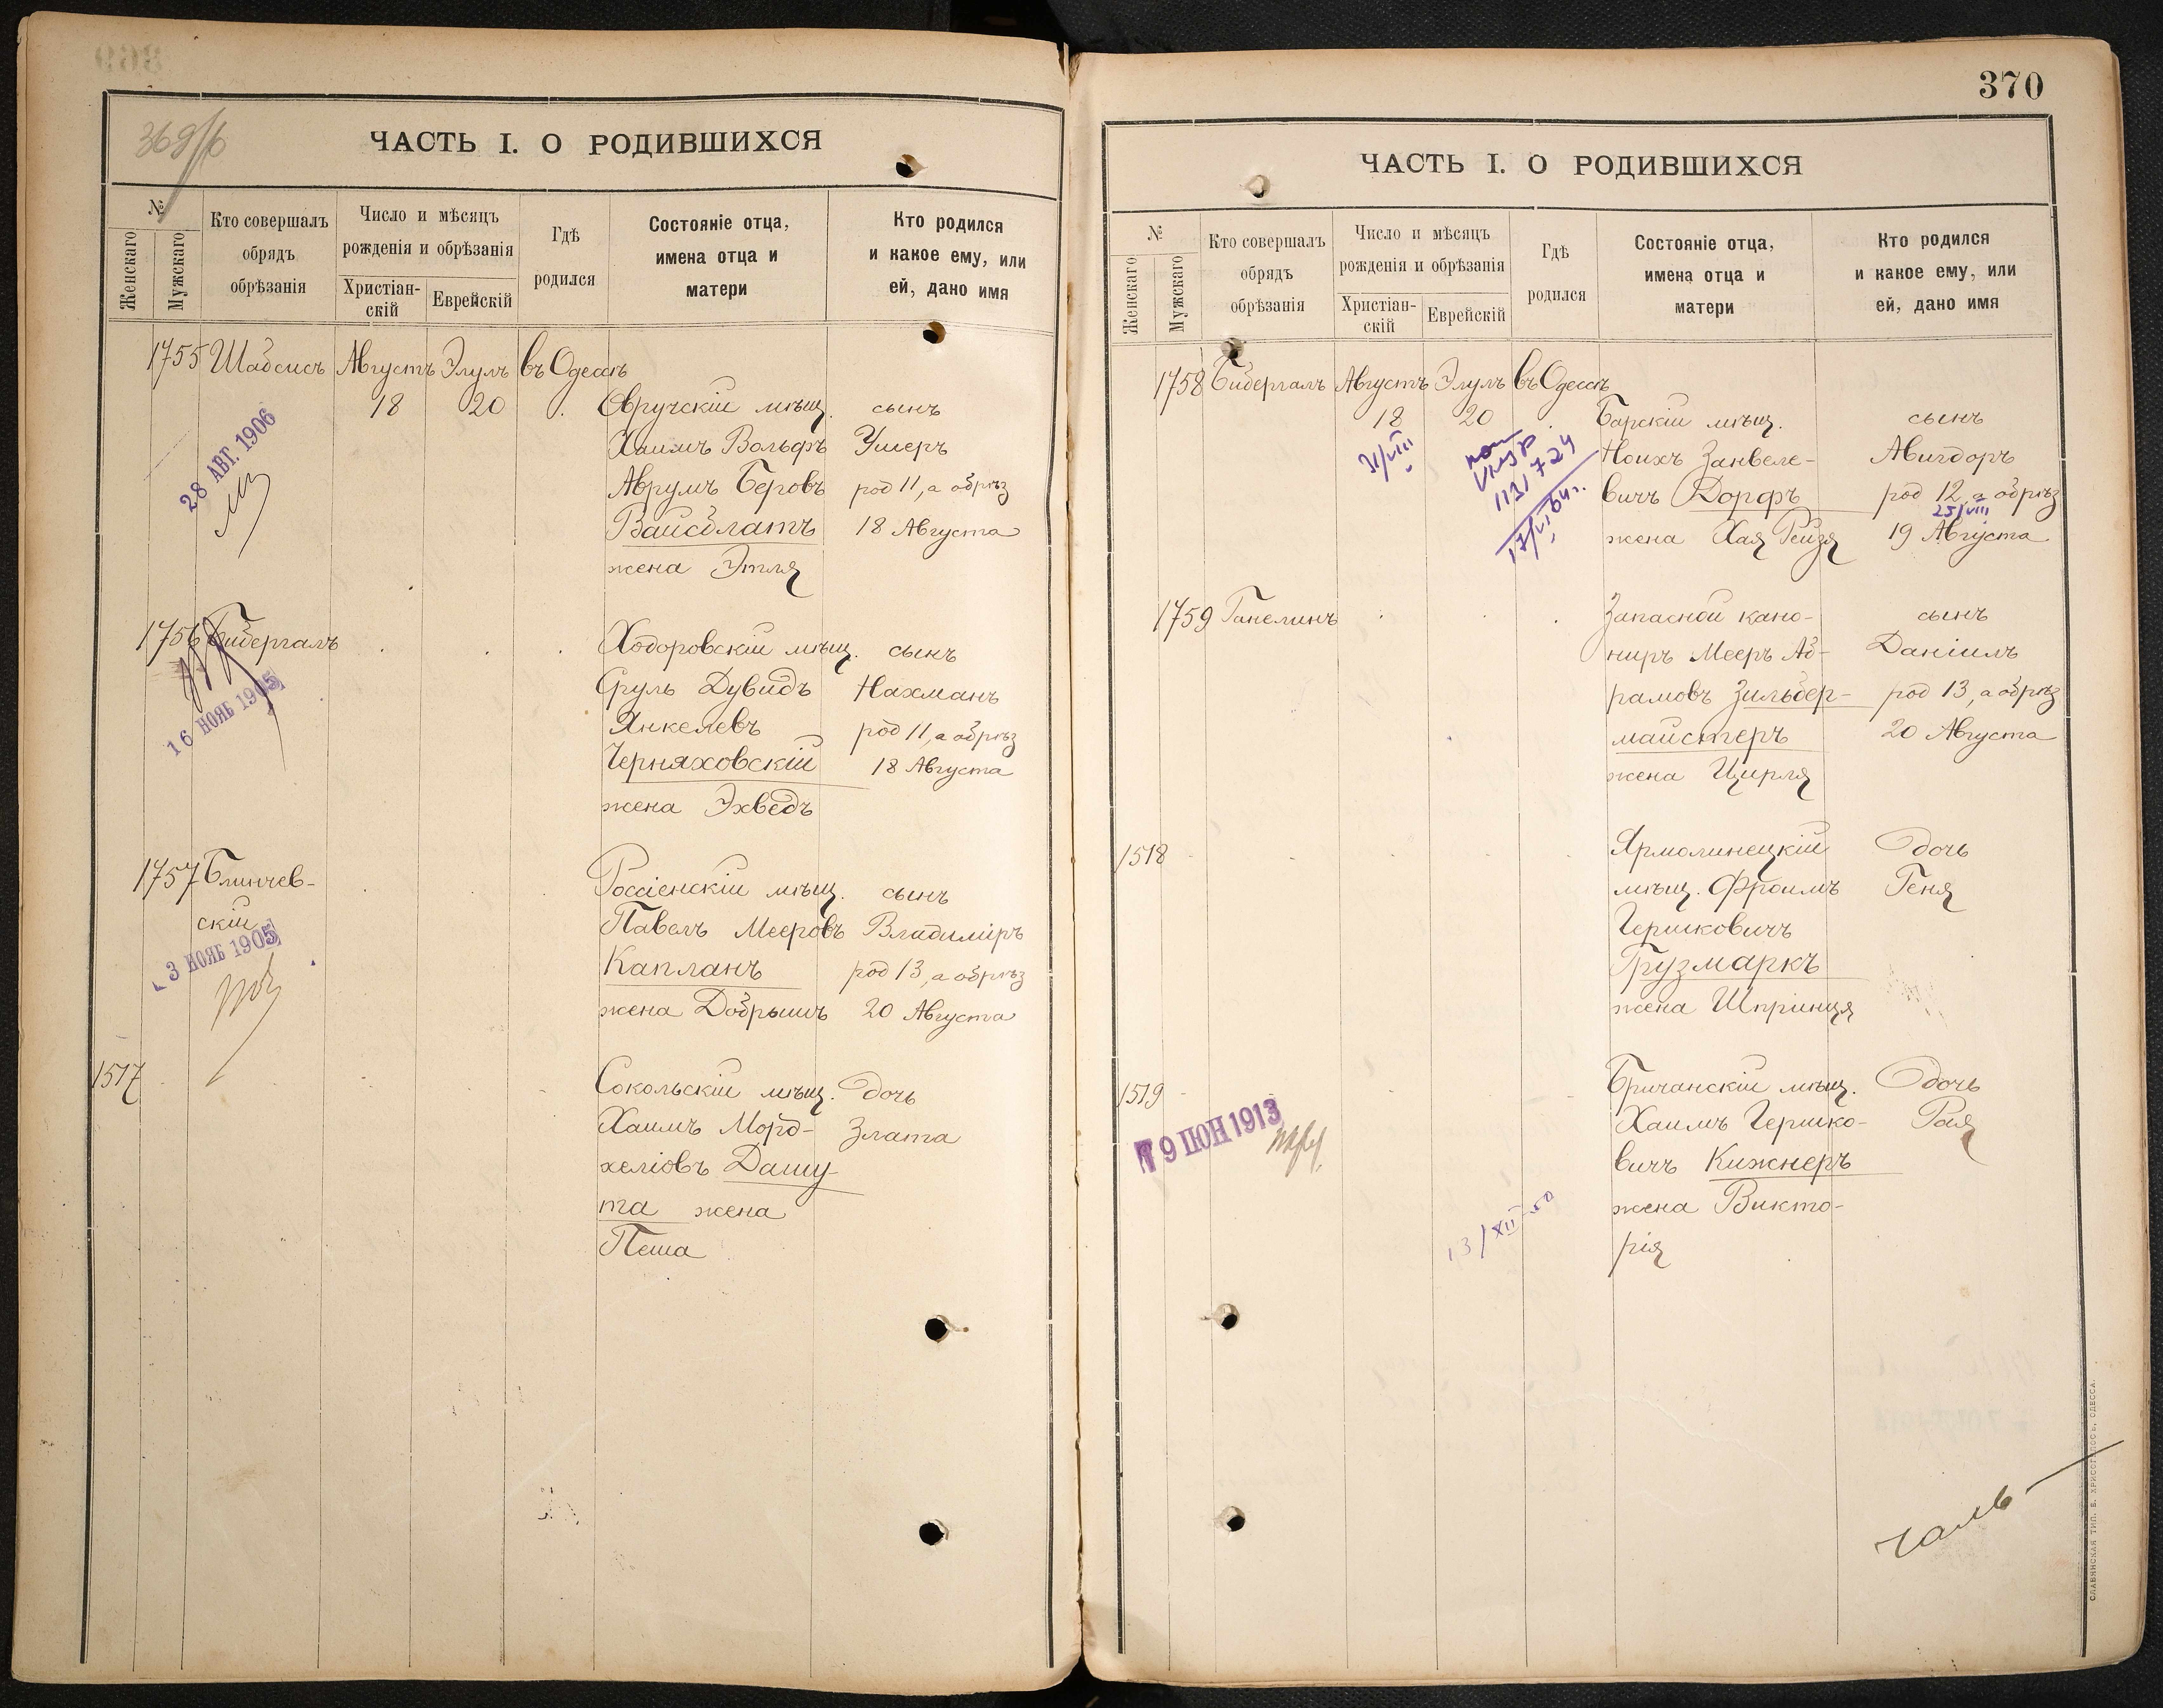 ЧАСТЬ I. О РОДИВШИХСЯ
№
Женскаго
Мужскаго
Кто совершалъ
обрядъ
обрѣзанія
Число и мѣсяцъ
рожденія и обрѣзанія
Христіан-
скій
Еврейскій
Гдѣ
родился
Состояніе отца,
имена отца и
матери
Кто родился
и какое ему, или
ей, дано имя
1755 Шабсисъ Августъ Элулъ въ Одессѣ
18 20 Овручскій мѣщ. сынъ
28 АВГ. 1906
Хаимъ Вольфъ Умеръ
Аврумъ Беровъ род 11, а обрѣз
Вайсблатъ 18 Августа
жена Этля
1756 Бибергалъ Ходоровскій мѣщ. сынъ
16 НОЯБ 1905
Сруль Дувидъ Нахманъ
Янкелевъ род 11, а обрѣз
Черняховскій 18 Августа
жена Эхведъ
1757 Блинчев-
скій
3 НОЯБ 1905
Россіенскій мѣщ. сынъ
Павелъ Мееровъ Владиміръ
Капланъ род 13, а обрѣз
жена Добрышъ 20 Августа
1517 Сокольскій мѣщ. дочь
Хаимъ Морд- Злата
хеліовъ Дашу-
та жена
Пеша
370
ЧАСТЬ I. О РОДИВШИХСЯ
№
Женскаго
Мужскаго
Кто совершалъ
обрядъ
обрѣзанія
Число и мѣсяцъ
рожденія и обрѣзанія
Христіан-
скій
Еврейскій
Гдѣ
родился
Состояніе отца,
имена отца и
матери
Кто родился
и какое ему, или
ей, дано имя
1758 Бибергалъ Августъ Элулъ въ Одессѣ
18 20 Барскій мѣщ. сынъ
31/VIII
Ноихъ Занвеле- Авигдоръ
вичъ Дорфъ род 12, а обрѣз
25/VIII
жена Хая Рейзя 19 Августа
17/VI 64 г.
1759 Ганелинъ Запасной кано- сынъ
ниръ Мееръ Аб- Даніилъ
рамовъ Зильбер- род 13, а обрѣз
майстеръ 20 Августа
жена Цирля
1518 Ярмолинецкій дочь
мѣщ. Фроимъ Геня
Гершковичъ
Грузмаркъ
жена Шпринця
1519 Бричанскій мѣщ. дочь
19 ІЮН 1913
Хаимъ Гершко- Рая
вичъ Кижнеръ
жена Викто-
рія
13/XII-50
СЛАВЯНСКАЯ ТИП. Е. ХРИСОГЕЛОСЪ, ОДЕССА.